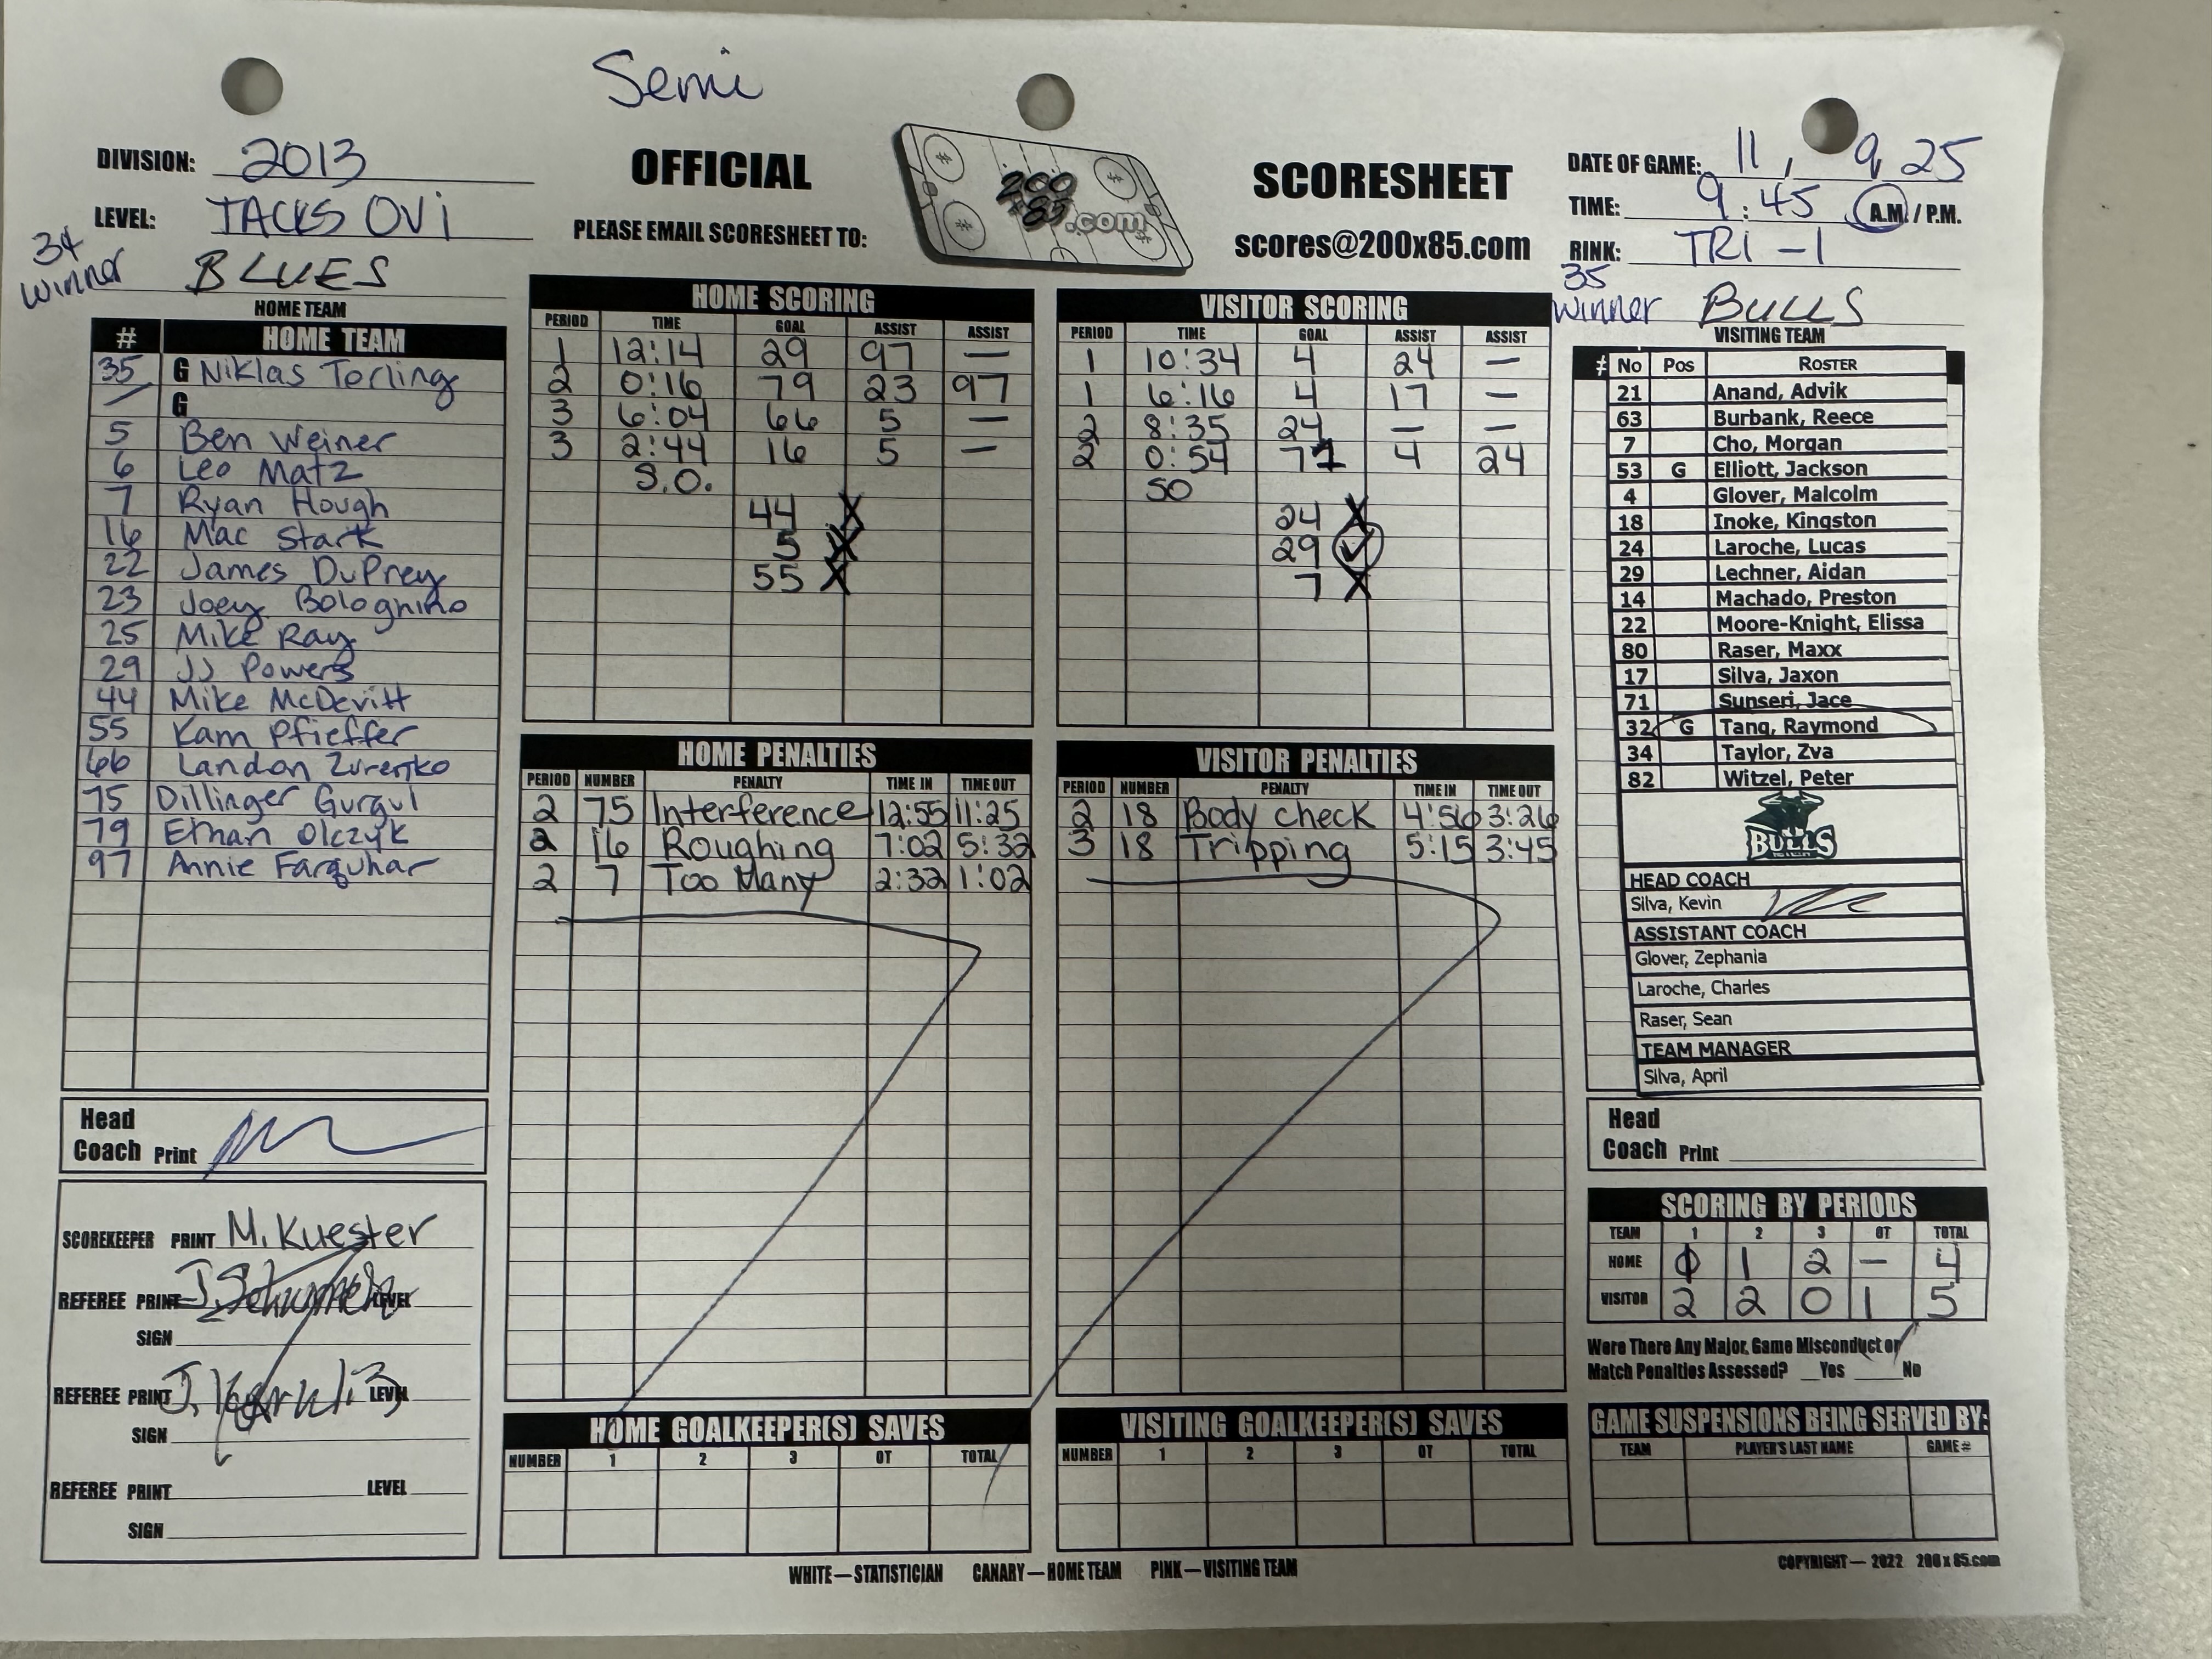 Semi
DIVISION: 2013
LEVEL: JACKS OVi
34 winner BLUES
HOME TEAM
OFFICIAL
PLEASE EMAIL SCORESHEET TO:
200x85.com
SCORESHEET
scores@200x85.com
DATE OF GAME: 11, 9, 25
TIME: 9:45 A.M. / P.M.
RINK: TRI-1
35 winner BULLS
VISITING TEAM
# HOME TEAM
35 G Niklas Torling
G
5 Ben Weiner
6 Leo Matz
7 Ryan Hough
16 Mac Stark
22 James DuPrey
23 Joey Bolognino
25 Mike Ray
29 JJ Powers
44 Mike McDevitt
55 Kam Pfieffer
66 Landon Zurenko
75 Dillinger Gurgul
79 Ethan Olczyk
97 Annie Farquhar
Head Coach Print
SCOREKEEPER PRINT M. Kuester
REFEREE PRINT LEVEL
SIGN
REFEREE PRINT LEVEL
SIGN
REFEREE PRINT LEVEL
SIGN
HOME SCORING
PERIOD TIME GOAL ASSIST ASSIST
1 12:14 29 97 —
2 0:16 79 23 97
3 6:04 66 5 —
3 2:44 16 5 —
S.O.
44 X
5 X
55 X
VISITOR SCORING
PERIOD TIME GOAL ASSIST ASSIST
1 10:34 4 24 —
1 6:16 4 17 —
2 8:35 24 — —
2 0:54 71 4 24
SO
24 X
29 ✓
7 X
HOME PENALTIES
PERIOD NUMBER PENALTY TIME IN TIME OUT
2 75 Interference 12:55 11:25
2 16 Roughing 7:02 5:32
2 7 Too Many 2:32 1:02
VISITOR PENALTIES
PERIOD NUMBER PENALTY TIME IN TIME OUT
2 18 Body check 4:56 3:26
3 18 Tripping 5:15 3:45
HOME GOALKEEPER(S) SAVES
NUMBER 1 2 3 OT TOTAL
VISITING GOALKEEPER(S) SAVES
NUMBER 1 2 3 OT TOTAL
# No Pos ROSTER
21 Anand, Advik
63 Burbank, Reece
7 Cho, Morgan
53 G Elliott, Jackson
4 Glover, Malcolm
18 Inoke, Kingston
24 Laroche, Lucas
29 Lechner, Aidan
14 Machado, Preston
22 Moore-Knight, Elissa
80 Raser, Maxx
17 Silva, Jaxon
71 Sunseri, Jace
32 G Tang, Raymond
34 Taylor, Zva
82 Witzel, Peter
BULLS
HEAD COACH
Silva, Kevin
ASSISTANT COACH
Glover, Zephania
Laroche, Charles
Raser, Sean
TEAM MANAGER
Silva, April
Head Coach Print
SCORING BY PERIODS
TEAM 1 2 3 OT TOTAL
HOME 1 1 2 — 4
VISITOR 2 2 0 1 5
Were There Any Major, Game Misconduct or
Match Penalties Assessed? __Yes ____No
GAME SUSPENSIONS BEING SERVED BY:
TEAM PLAYER'S LAST NAME GAME #
WHITE—STATISTICIAN CANARY—HOME TEAM PINK—VISITING TEAM
COPYRIGHT— 2022 200x85.com